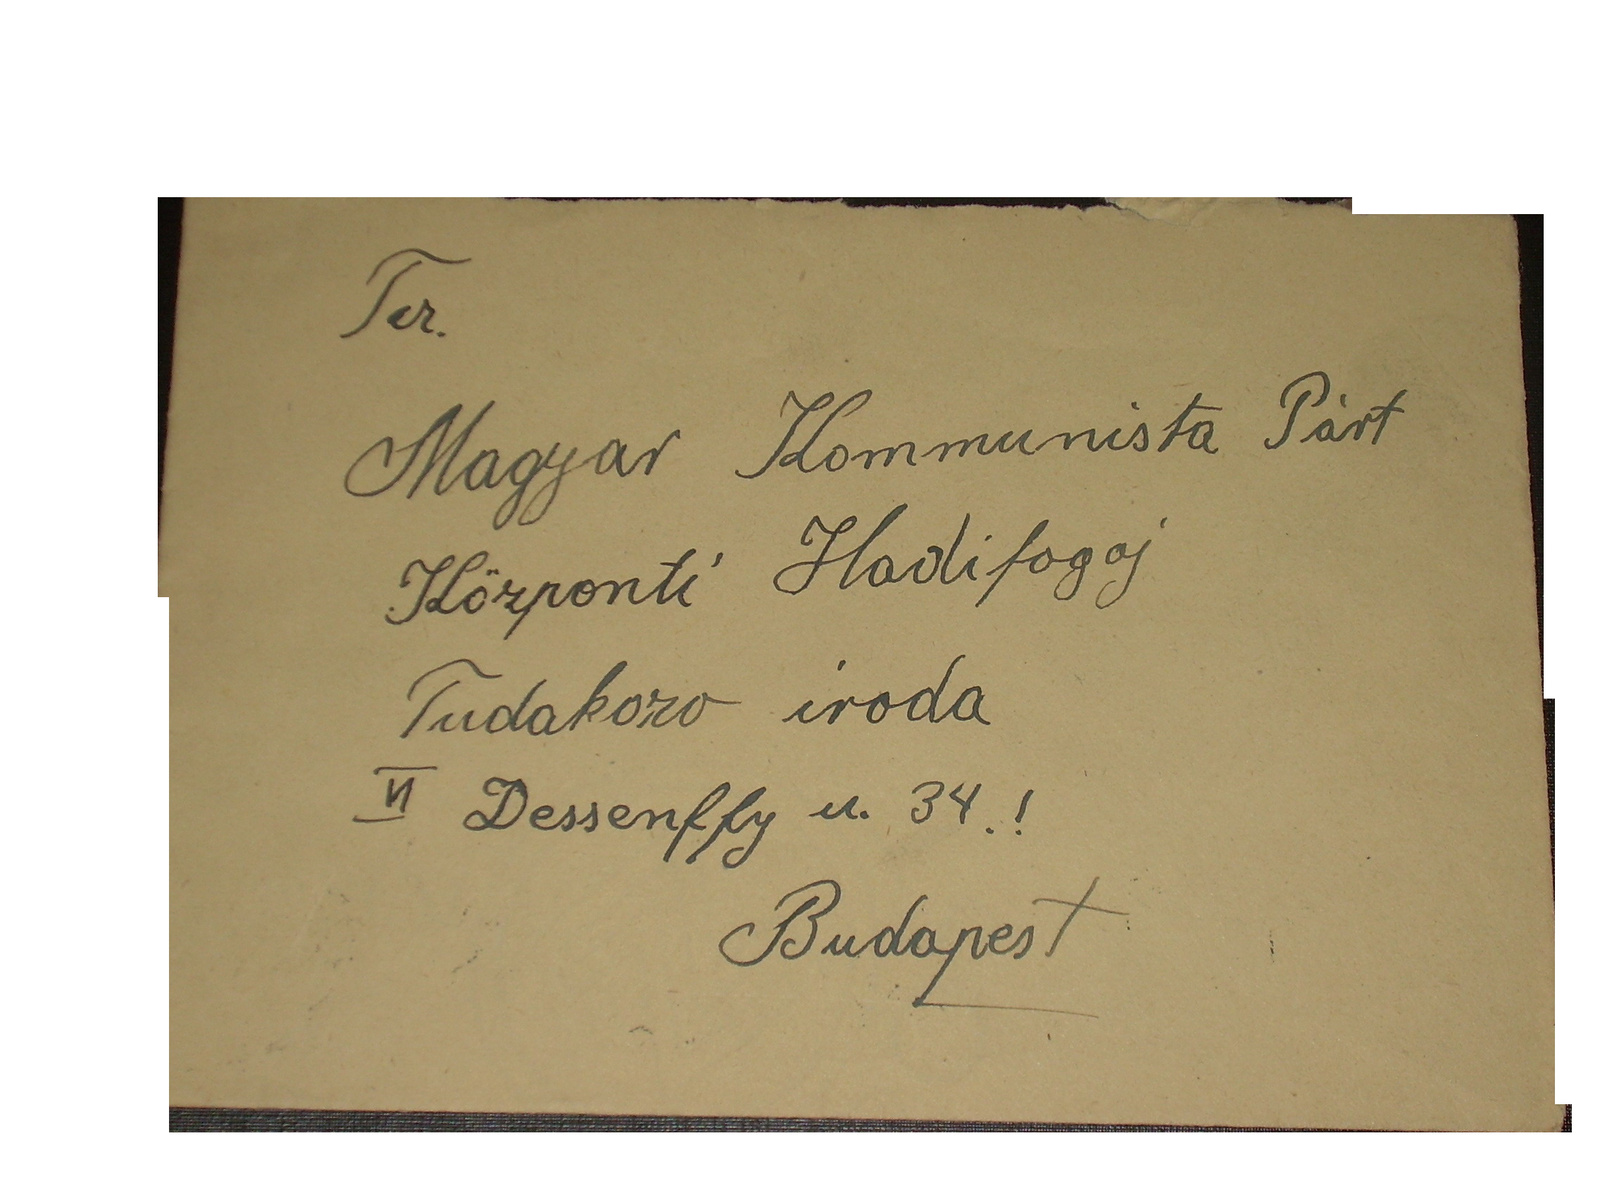 Ter.
Magyar Kommunista Párt
Központi Hadifogoj
Tudakozo iroda
VI Dessenffy u. 34.!
Budapest